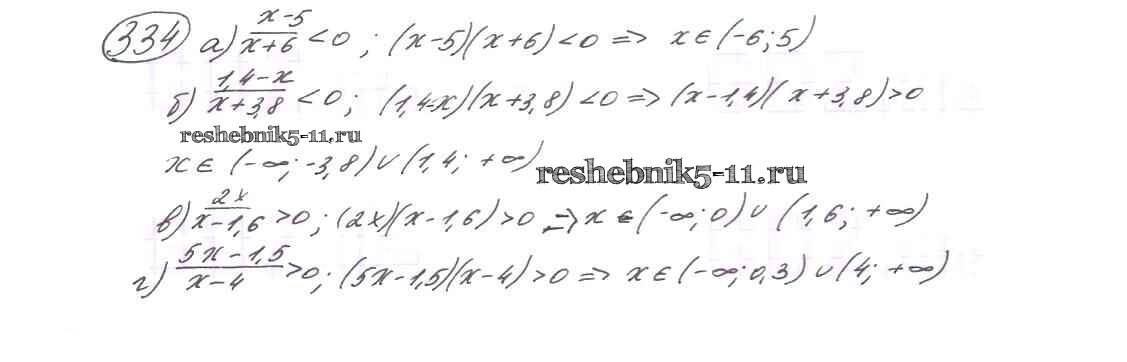 334 а) (x-5)/(x+6) <0 ; (x-5)(x+6)<0 => x∈(-6;5)
б) (1,4-x)/(x+3,8) <0; (1,4-x)(x+3,8)<0 => (x-1,4)(x+3,8)>0
reshebnik5-11.ru
x∈ (-∞; -3,8)∪(1,4; +∞)
reshebnik5-11.ru
в) 2x/(x-1,6) >0; (2x)(x-1,6)>0 => x∈(-∞;0)∪(1,6; +∞)
г) (5x-1,5)/(x-4) >0; (5x-1,5)(x-4)>0 => x∈(-∞;0,3)∪(4; +∞)